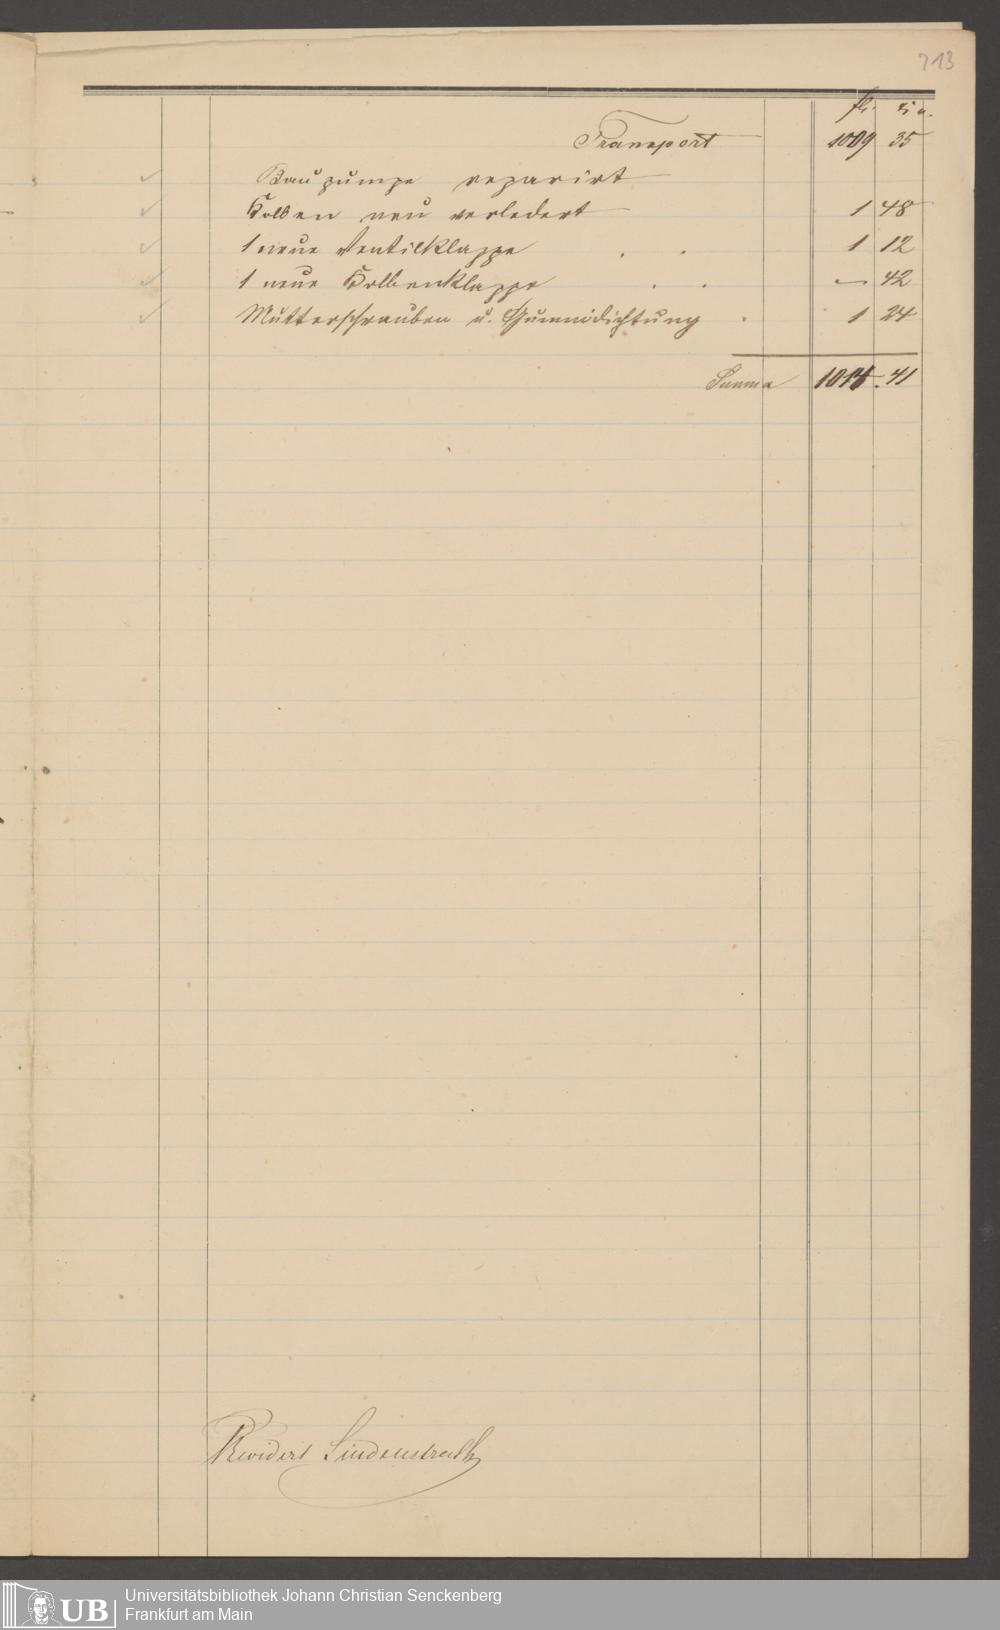 713
fl. Xr.
Transport 1009 35
Baupumpe reparirt
Kolben neu verledert 1 48
1 neue Ventilklappe . . 1 12
1 neue Kolbenklappe . . — 42
Mutterschrauben u. Gummidichtung . 1 24
Summa 1014.41
Revidert Lindenstruth
UB
Universitätsbibliothek Johann Christian Senckenberg
Frankfurt am Main